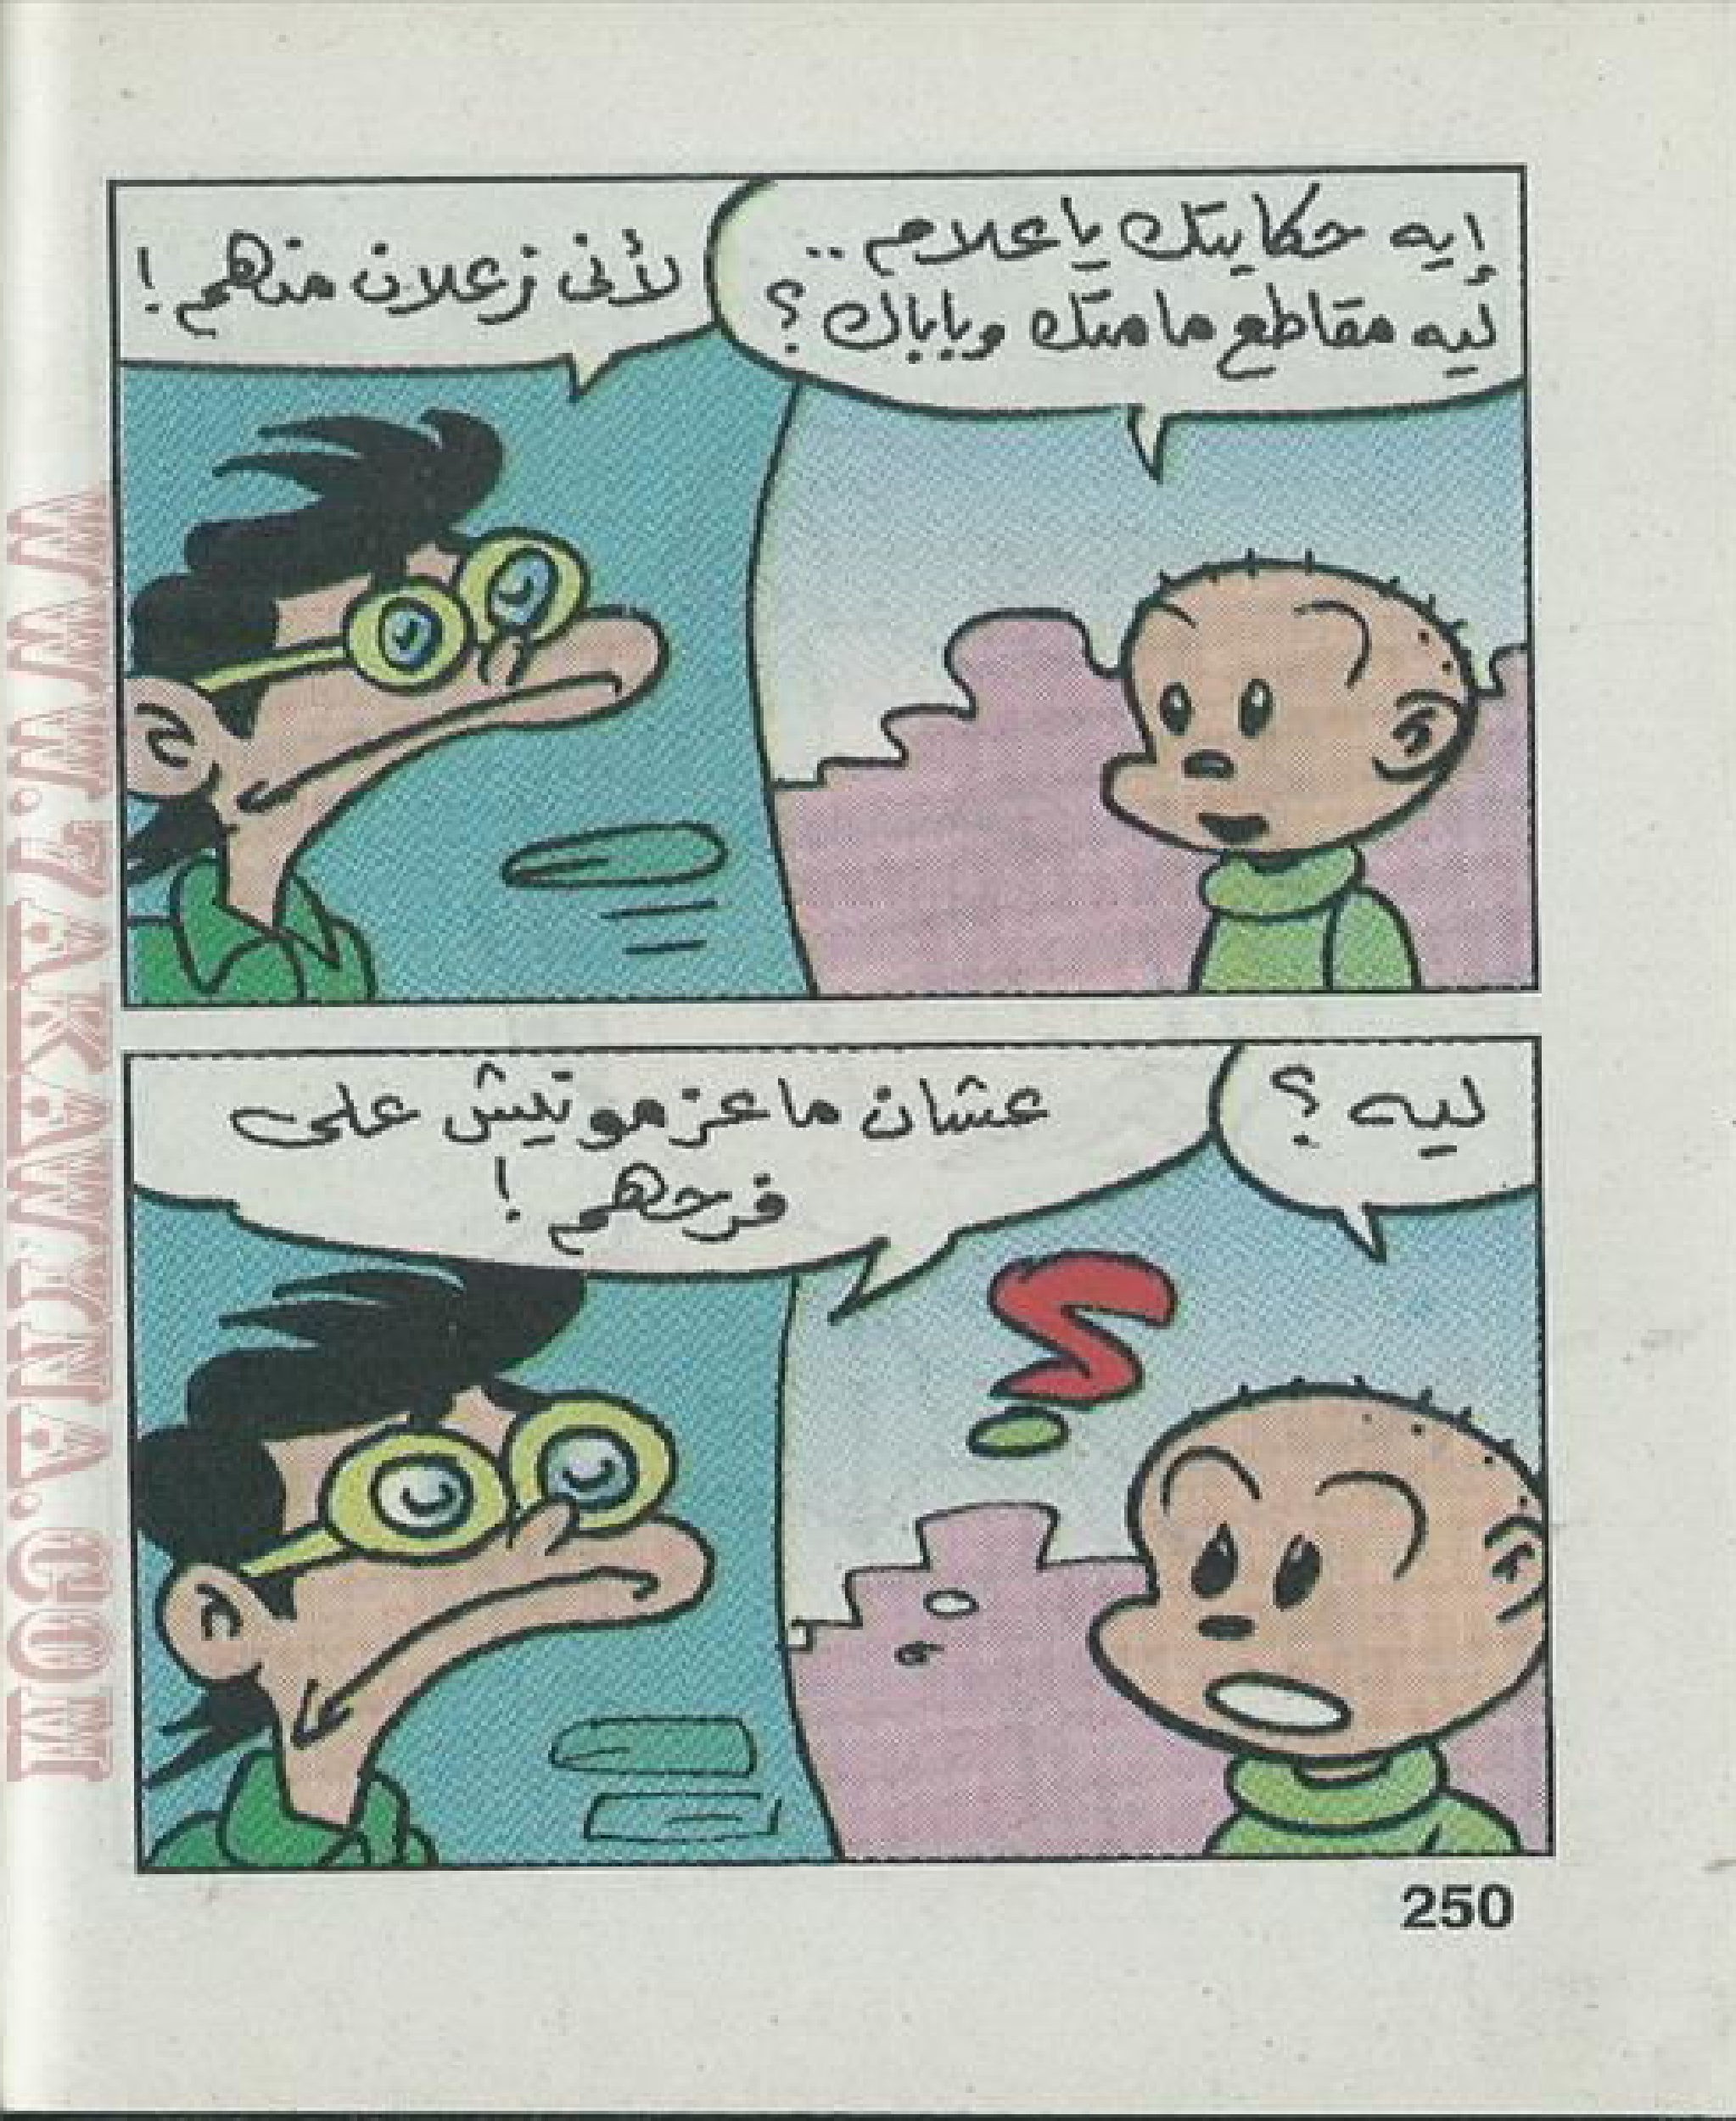 إيه حكايتك يا علام ..
ليه مقاطع مامتك وباباك ؟
لأنى زعلان منهم !
ليه ؟
عشان ماعزموتيش على
فرحهم !
250
WWW.7AKAWINA.COM